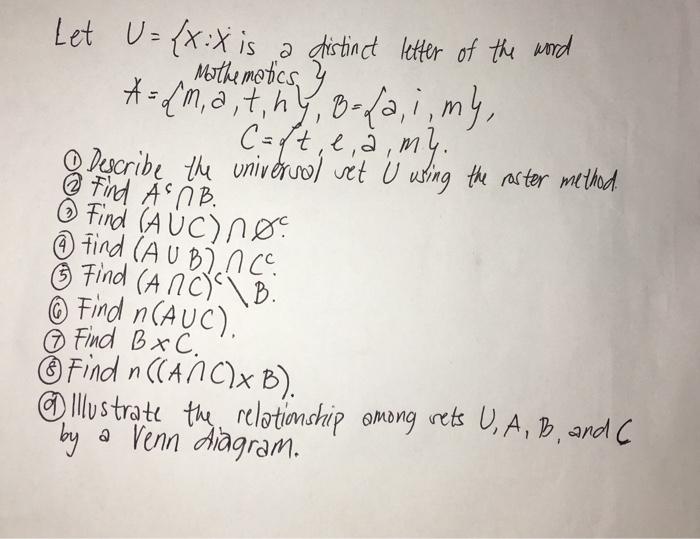 Let U = {x : x is a distinct letter of the word
Mathematics}
A = {m, a, t, h}, B = {a, i, m},
C = {t, e, a, m}.
① Describe the universal set U using the roster method.
② Find Aᶜ ∩ B.
③ Find (A ∪ C) ∩ ∅ᶜ.
④ Find (A ∪ B) ∩ Cᶜ.
⑤ Find (A ∩ C)ᶜ \ B.
⑥ Find n(A ∪ C).
⑦ Find B × C.
⑧ Find n((A ∩ C) × B).
⑨ Illustrate the relationship among sets U, A, B, and C
by a Venn diagram.